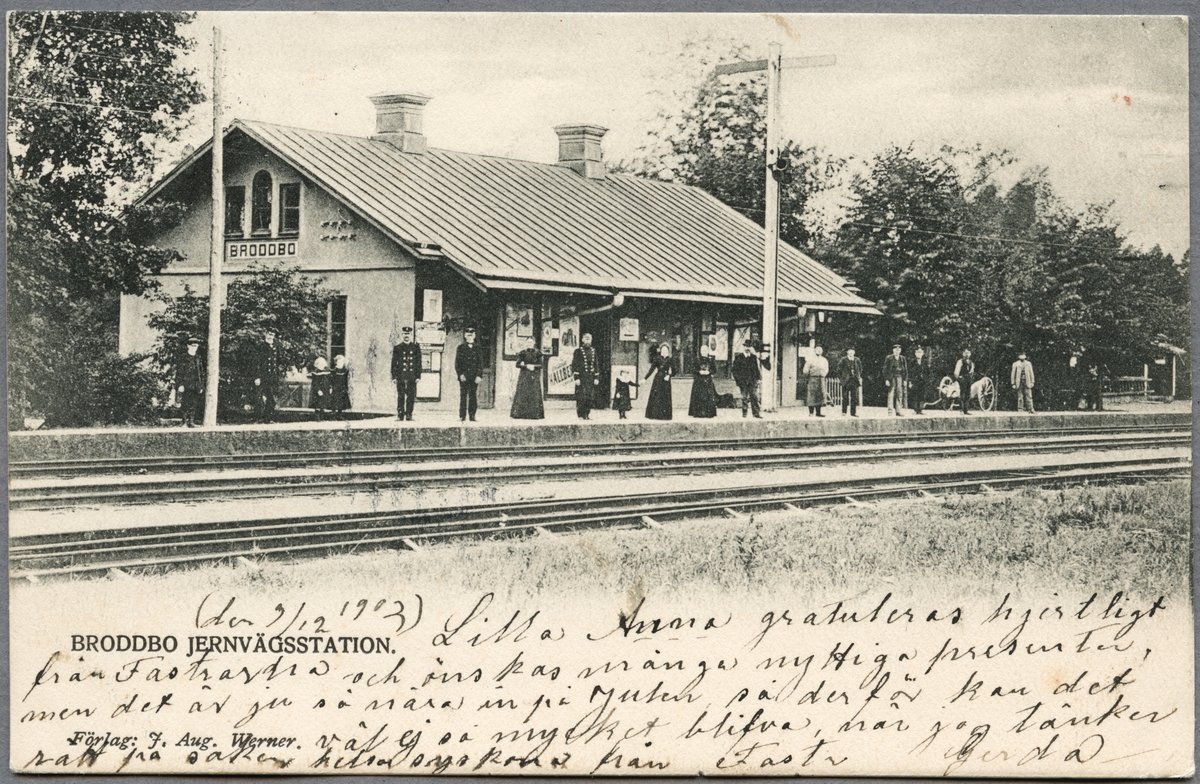 BRODDBO
(den 9/12 1903)
BRODDBO JERNVÄGSSTATION.
Lilla Anna gratuleras hjertligt
från och önskas många nyttiga presenter,
men det är ju så nära in på Julen, så derför kan det
Förlag: J. Aug. Werner.
väl ej så mycket blifva, när jag tänker
rätt på saken, helsa syskona från Faster Gerda